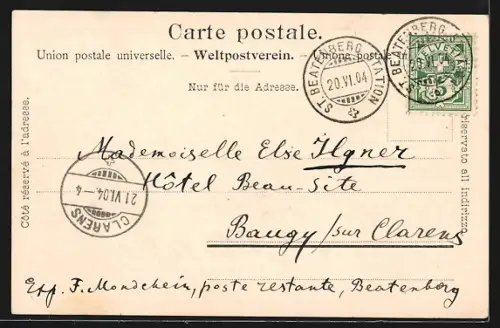 Carte postale.
Union postale universelle. - Weltpostverein. - Unione postale
Nur für die Adresse.
ST. BEATENBERG STATION
20.VI.04
ST. BEATENBERG
20.VI.04
HELVETIA
5
Côté réservé à l'adresse.
riservato all indirizzo.
Mademoiselle Else Ilgner
Hôtel Beau-Site
Baugy /sur Clarens
CLARENS
21.VI.04.-4
F. Mondchein, poste restante, Beatenberg